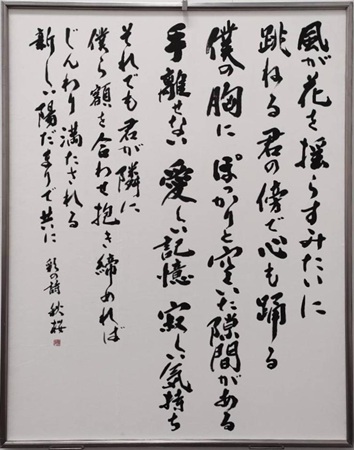 風が花を揺らすみたいに
跳ねる君の傍で心も踊る
僕の胸にぽっかりと空いた隙間がある
手離せない愛しい記憶 寂しい気持ち
それでも君が隣に
僕ら額を合わせ抱き締めれば
じんわり満たされる
新しい陽だまりで共に
彩の詩 秋桜